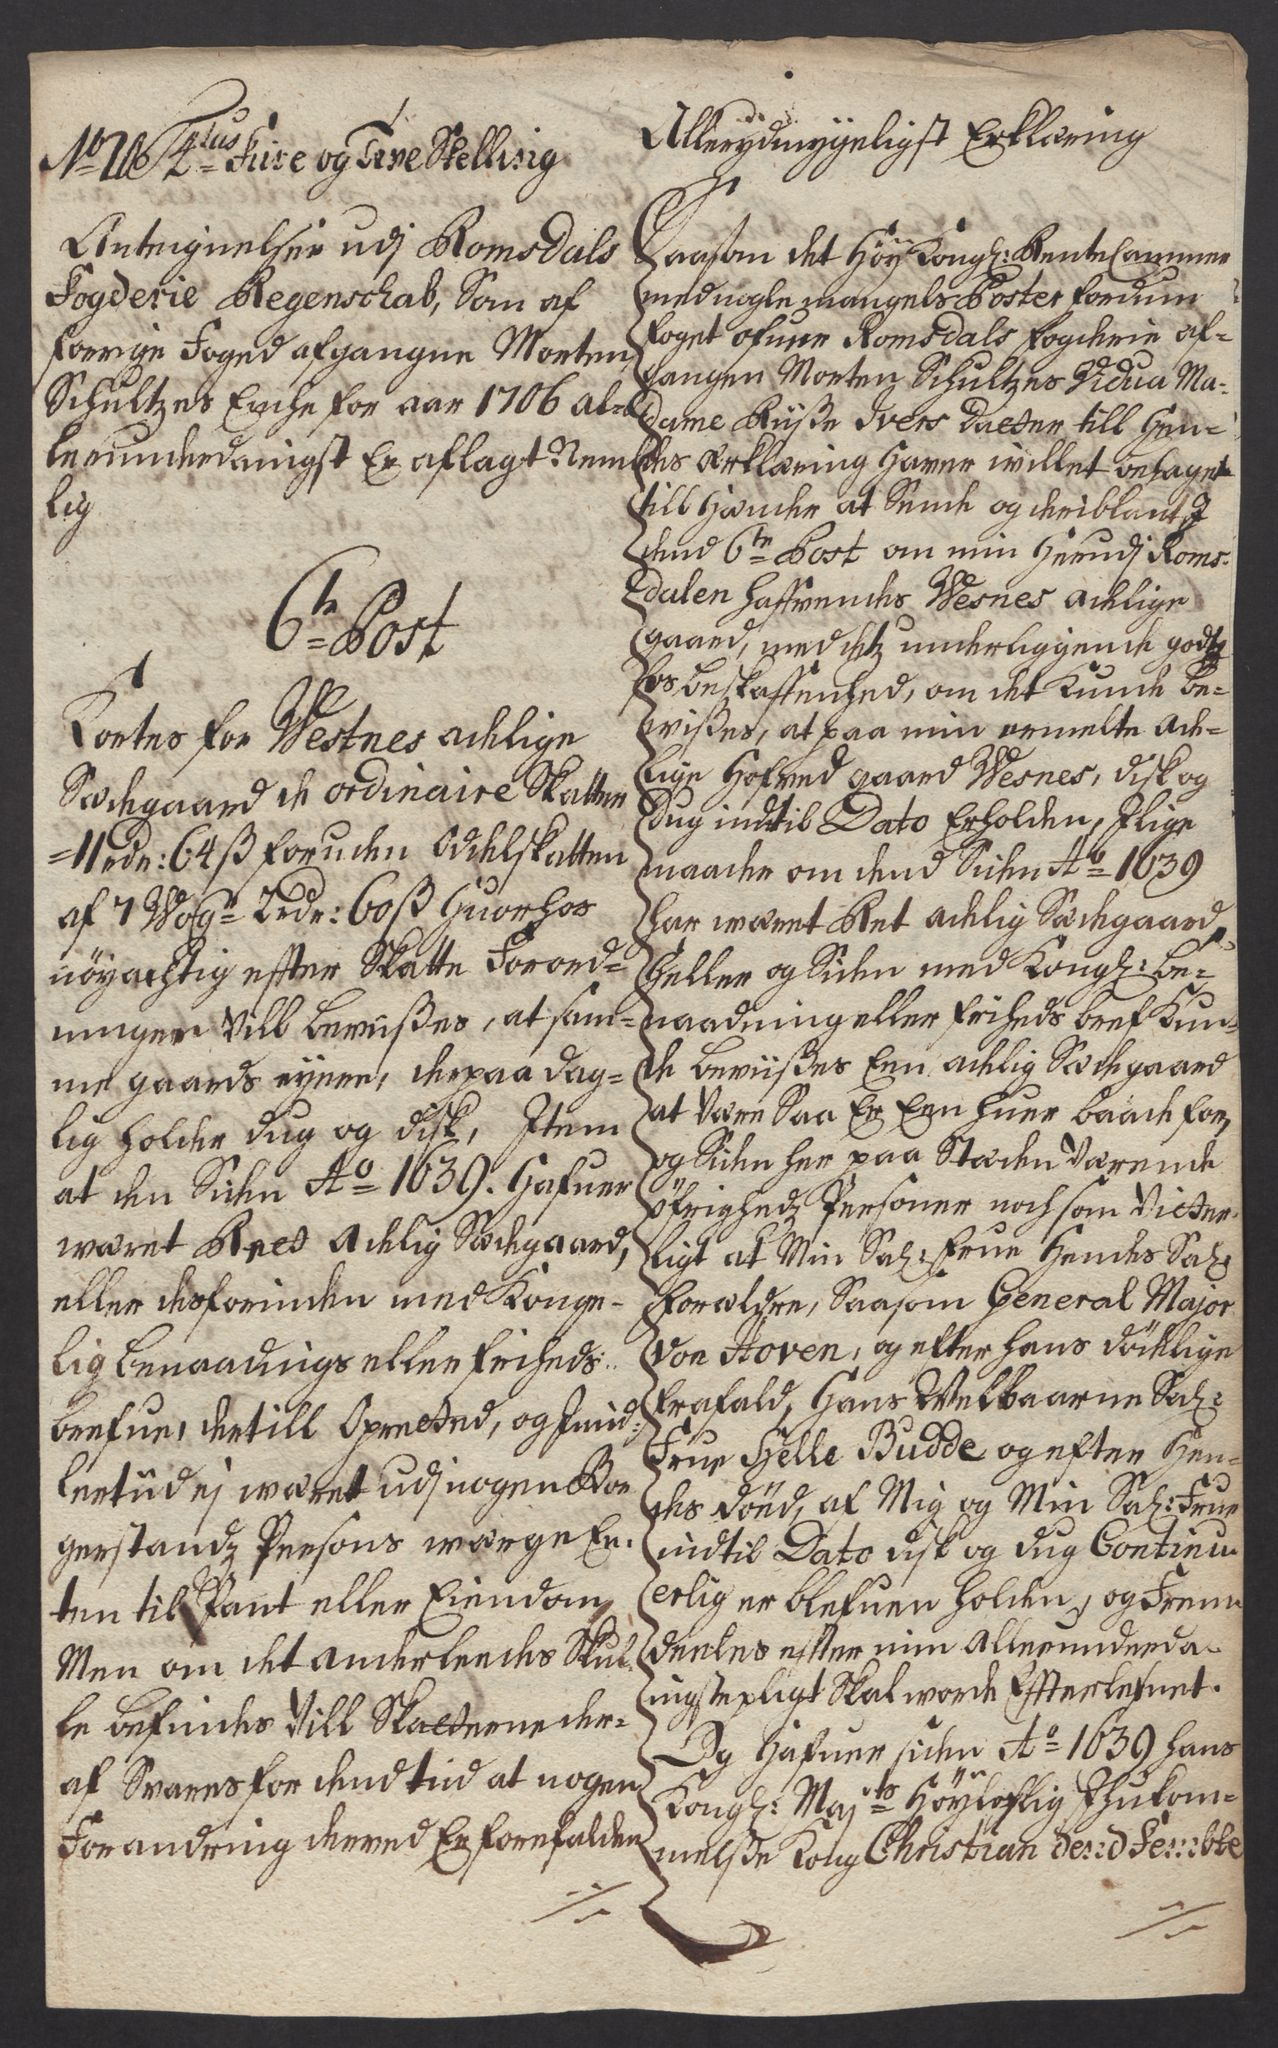 No 216 4tus Fiire og Tive Skelling
Antegnelser udj Romsdals
Fogderie Regenschab, Som af
forrige Foged afgangne Morten
Schultzes Enche for aar 1706 al-
lerunderdanigst Er aflagt Nem-
lig
6te Post
Kortes for Westnes adelige
Sædegaard de ordinaire Skatter
11 rdr: 64 ß foruden Odelskatten
af 7 Wog 2 rdr: 60 ß Huorhos
nöyachtig efter Skatte Forord-
ningen Vill beviißes, at sam-
me gaards eyere, derpaa dag-
lig holder dug og disk, Item
at den Siden Ao 1639. Hafuer
weret Ret Adelig Sædegaard,
eller desforinden med Konge-
lig benaadings eller friheds
brefue, dertill Oprettet, og Imid-
lertiid ej weret udj nogen Bor
gerstandz Persons werge En-
ten til Pant eller Eiendom,
Men om det anderledes Skul-
le befindes Vill Skatterne der-
af Svares for dend tiid at nogen
Forandring derved Er forefalden
Allerydmygeligst Erklæring
Saasom det Höy Kongl: Rente Cammer
med nogle mangels Poster fordum
foget ofuer Romsdals fogderie af-
gangen Morten Schultzes Vidua Ma-
dame Riiße Ivers Datter till Hen-
des Erklæring Haver willet behaget
till Hænder at Sende og deriblant I
dend 6te Post om min Herudj Roms-
dalen haffvendes Wesnes adelige
gaard, med detz underliggende godtz
sos beskaffenhed, om det Kunde be-
wißes, at paa min ermelte ade-
lige Hofved gaard Wesnes, disk og
Dug indtil Dato Erholden, Ilige
maader om dend Siden Ao 1639
har weret Ret adelig Sædegaard,
heller og Siden med Kongl: be-
naadning eller friheds bref Kun-
de beviißes Een adelig Sædegaard
at Være Saa Er Een huer baade for,
og Siden her paa Steden Værende
öfrigheds Persohner noch som Vitter-
ligt at Min Sal: Frue Hendes Sal:
Forældre, Saasom General Major
von Hoven, og efter hans dödelige
frafald, Hans Welbaarne Sal:
Frue Helle Budde og efter Hen-
des död, af Mig og Min Sal: Frue
indtil Dato disk og dug Continu-
erlig er blefuen holden, og Frem-
deeles efter min allerunderda-
nigste pligt Skal worde Efterlefuet.
Og Hafuer siden Ao 1639 hans
Kongl: Majts Höylofflig Ihukom-
melße Kong Christian dend Fembte